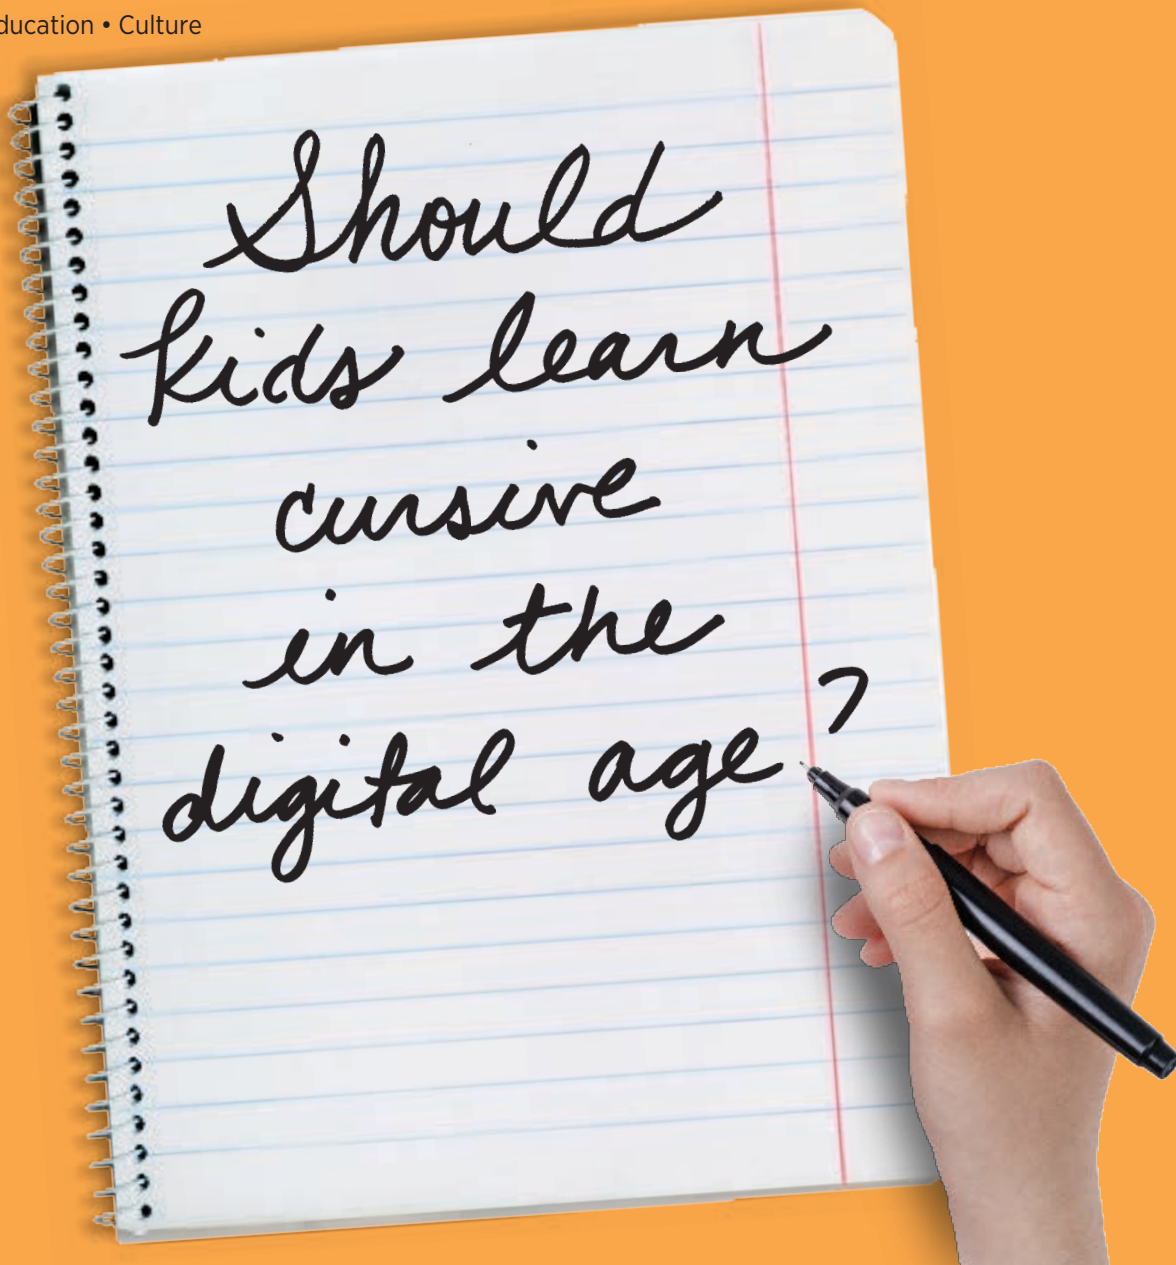 ducation • Culture
Should
kids learn
cursive
in the
digital age?